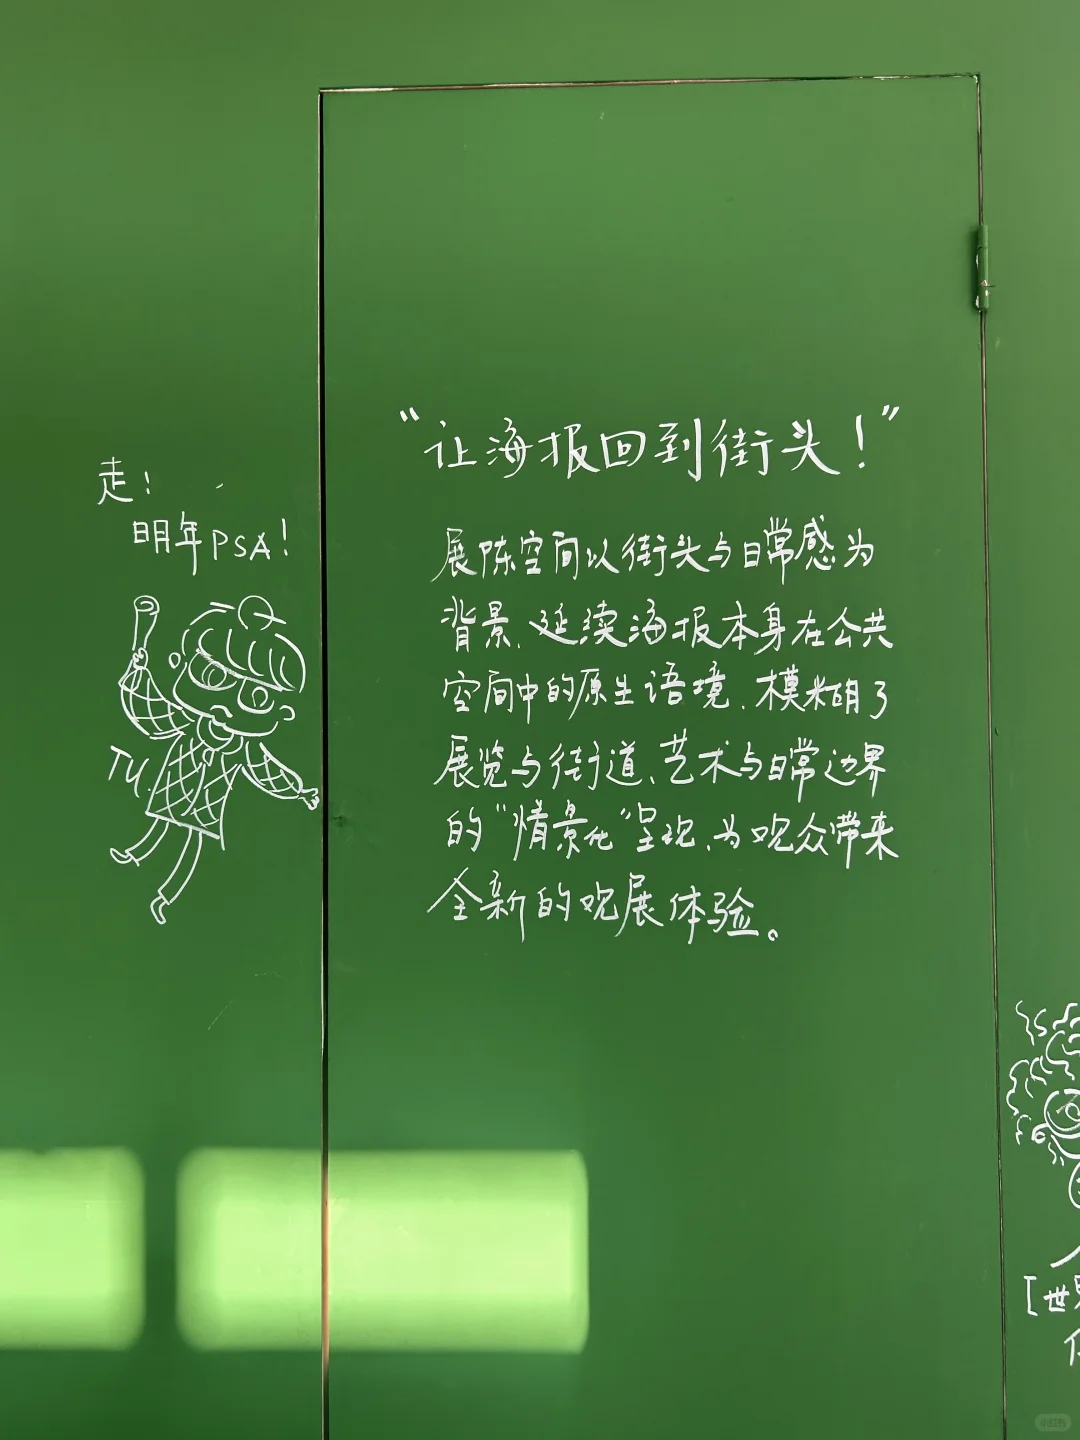 走！
明年PSA！
TU.
“让海报回到街头！”
展陈空间以街头与日常感为
背景、延续海报本身在公共
空间中的原生语境、模糊了
展览与街道、艺术与日常边界
的“情景化”呈现、为观众带来
全新的观展体验。
[世
小红书